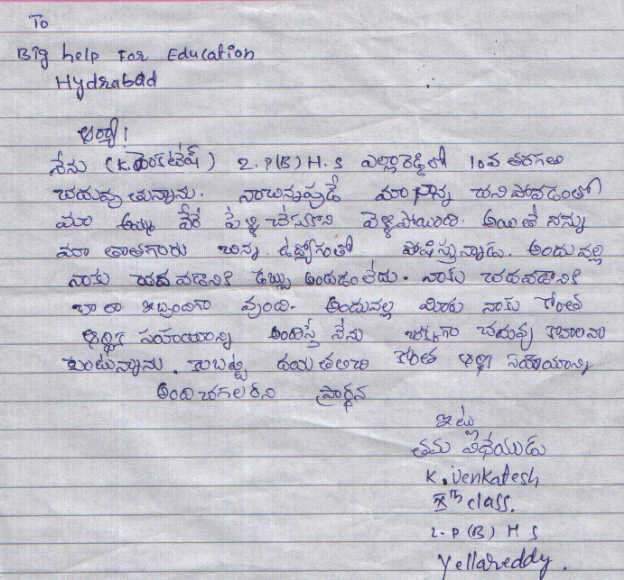 To
Big help For Education
Hydrabad
ఆర్యా!
నేను (K.వెంకటేష్) Z.P(B)H.S ఎల్లారెడ్డిలో 10వ తరగతి
చదువుతున్నాను. నాచిన్నపుడే మా నాన్న చనిపోవడంతో
మా అమ్మ వేరే పెళ్ళి చేసుకొని వెళ్ళిపోయింది. అయితే నన్ను
మా తాతగారు చిన్న ఉద్యోగంతో పోషిస్తున్నాడు. అందువల్ల
నాకు చదవడానికి డబ్బు అందడంలేదు. నాకు చదవడానికి
చాలా ఇబ్బందిగా వుంది. అందువల్ల మీరు నాకు కొంత
ఆర్థిక సహాయాన్ని అందిస్తే నేను చక్కగా చదువు కోవాలను
కుంటున్నాను. కాబట్టి దయతలచి కొంత ఆర్థిక సహాయాన్ని
అందించగలరని ప్రార్థన
ఇట్లు
తమ విధేయుడు
K. Venkatesh
Xth class.
Z.P(B) H S
Yellareddy.